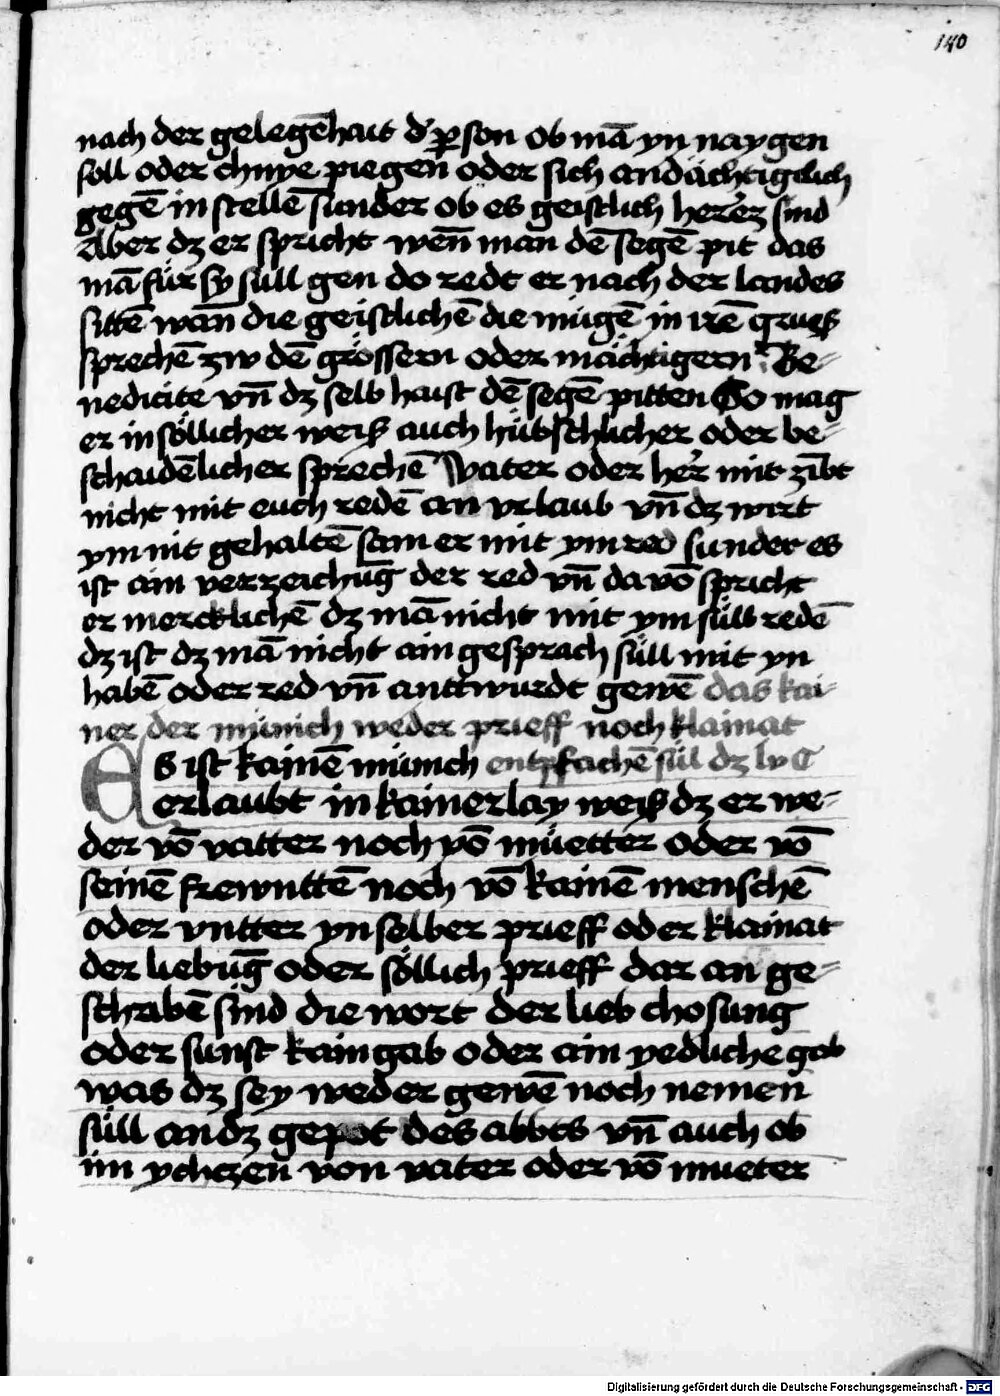 140
nach der gelegēhait d' ꝑson ob mā yn naygen
soll oder chnye piegen oder sich andächtigclich
gegē in stellē sunder ob es geistlich herēz sind
Aber dz er spricht wen̄ man dē segē pit das
mā für sy süll gen do redt er nach der landes
sittē wan̄ die geistlichē die mügē in irē grueß
sprechē zw dē grössern oder mächtigern Be-
nedicite vn̄ dz selb haist dē segē pitten So mag
er in söllicher weiß auch hübschlicher oder be-
schaidēlicher sprechē Vater oder her̄ mir zībt
nicht mit euch redē an vrlaub vn̄ dz wirt
ym nit gehaltē sam er mit ym red sunder es
ist ain verzeichūg der red vn̄ da vō spricht
er mercklichē dz mā nicht mit ym süll redē
dz ist dz mā nicht ain gesprach süll mit yn
habē oder red vn̄ anttwurdt gewē das kai-
ner der münich weder prieff noch klainat
ES ist kainē münich entpfachē sül dz lv C
erlaubt in kainerlay weiß dz er we-
der vō vatter noch vō müetter oder vō
seinē frewnttē noch vō kainē menschē
oder vntter yn selber prieff oder klainat
der liebūg oder söllich prieff dar an ge-
schribē sind die wort der lieb chosung
oder sunst kain gab oder ain yedliche gab
was dz sey weder gewē noch nemen
süll an dz gepot des abbts vn̄ auch ob
im ychczen von vater oder vō mueter
Digitalisierung gefördert durch die Deutsche Forschungsgemeinschaft - DFG